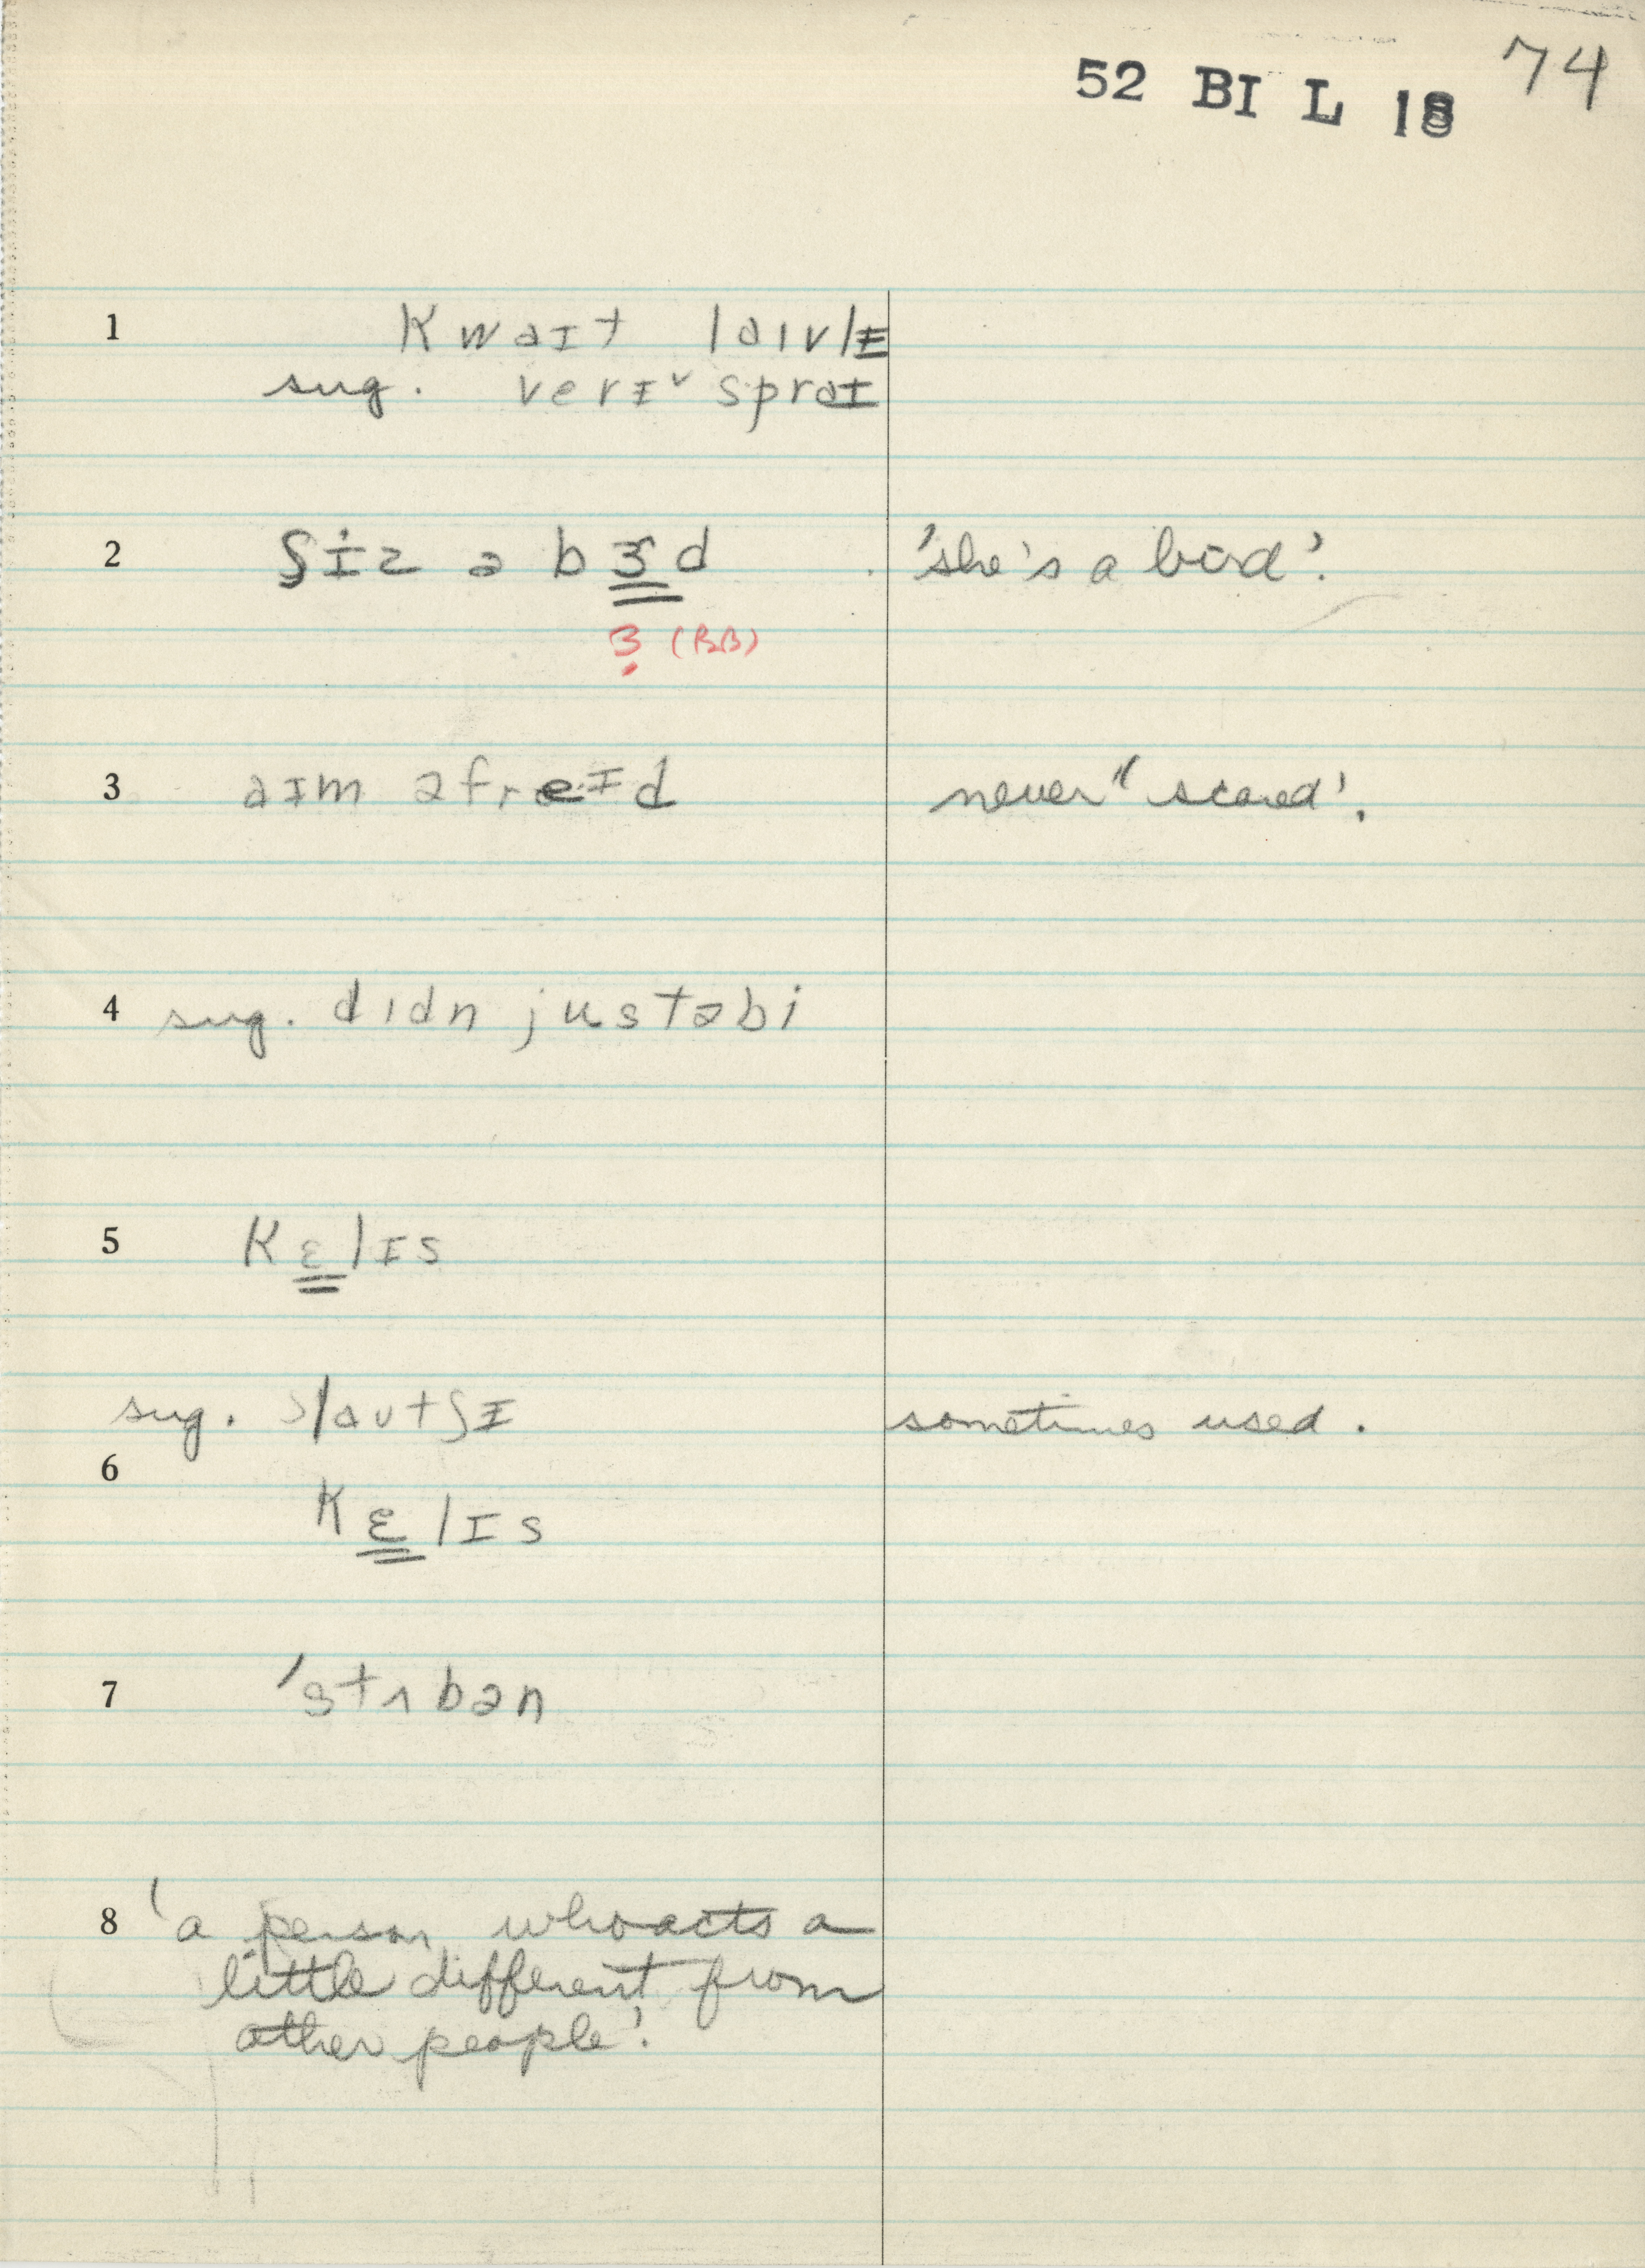 52 BI L 18 74
1 kwaɪt laɪvlɪ
sug. verɪᵛ spraɪ
2 ʃɪz ə bɝd 'she's a bird'.
ɜ̣ (BB)
3 aɪm əfreɪd never "scared'.
4 sug. dɪdn justəbi
5 kɛlɪs
sug. slautʃɪ sometimes used.
6
kɛlɪs
7 'stʌbən
8 'a person who acts a
little different from
other people'.